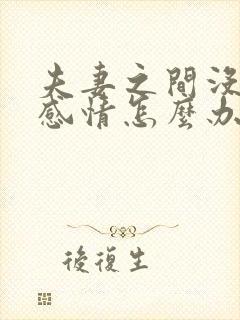 夫妻之間沒
感情怎麼办
後復生